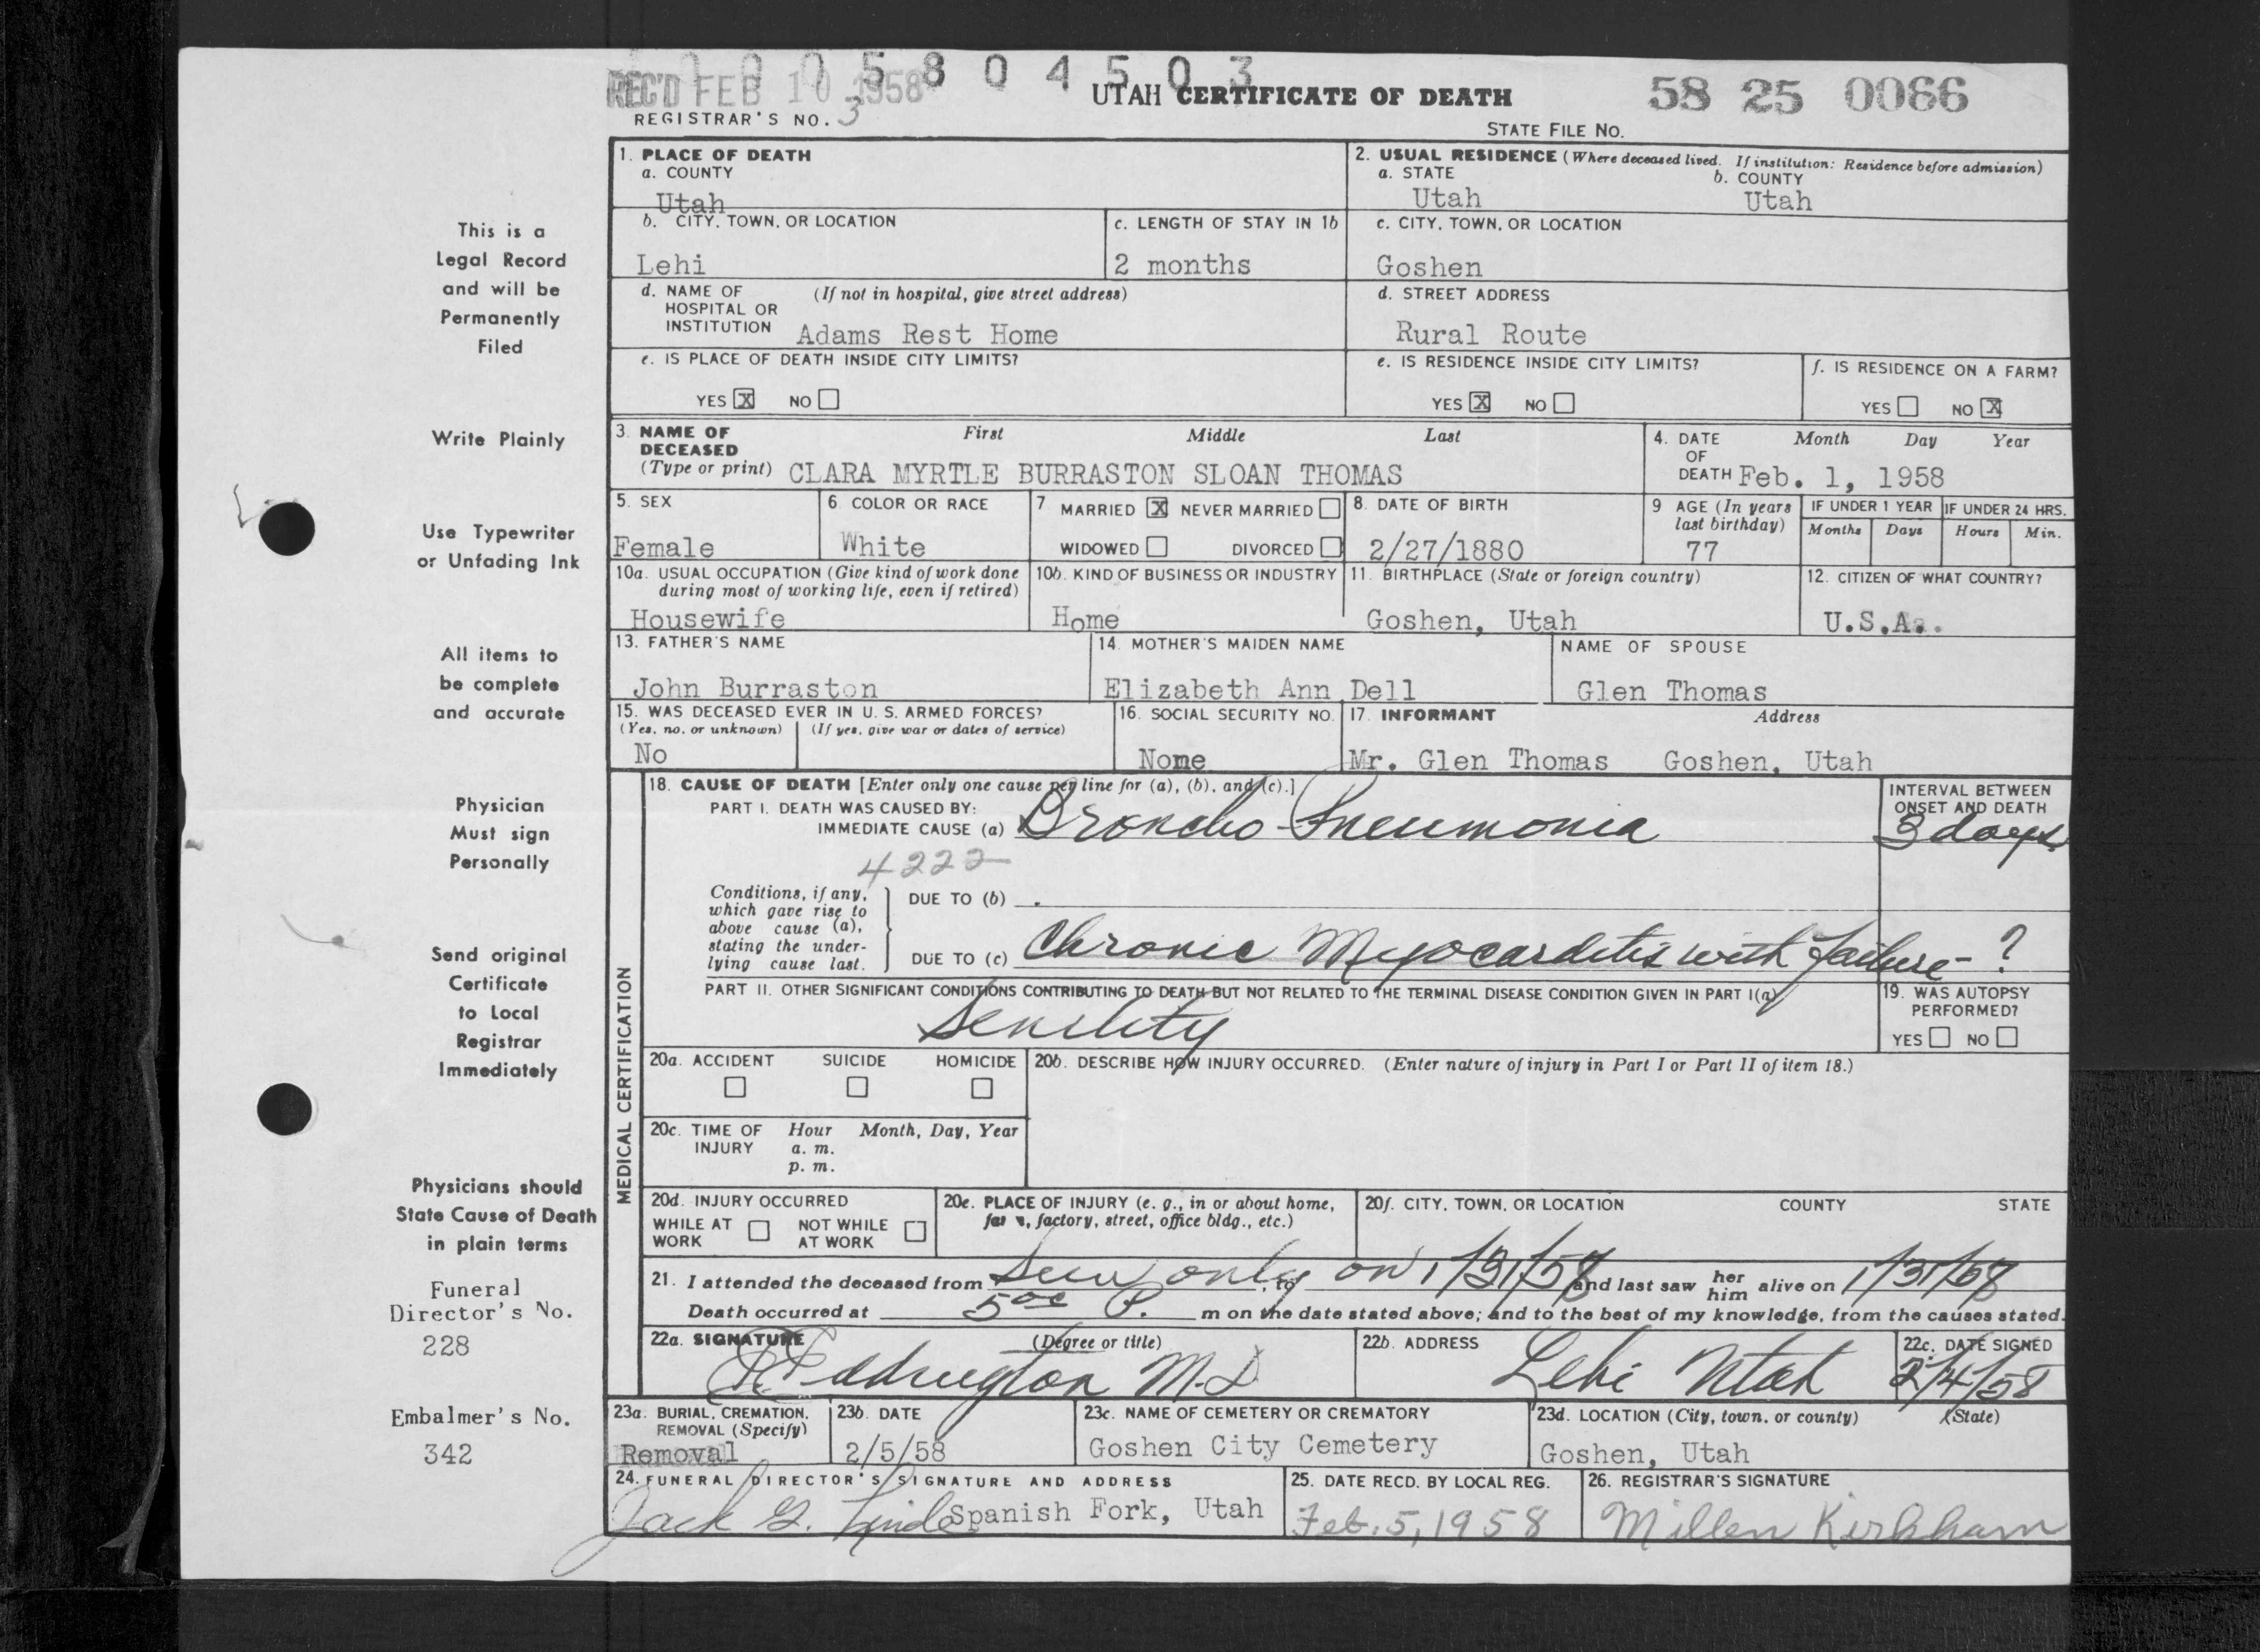 1 0 0 5 8 0 4 5 0 3
REC'D FEB 10 1958 UTAH CERTIFICATE OF DEATH 58 25 0066
REGISTRAR'S NO. 3 STATE FILE NO.
1. PLACE OF DEATH 2. USUAL RESIDENCE (Where deceased lived. If institution: Residence before admission)
a. COUNTY a. STATE b. COUNTY
Utah Utah Utah
b. CITY, TOWN, OR LOCATION c. LENGTH OF STAY IN 1b c. CITY, TOWN, OR LOCATION
Lehi 2 months Goshen
d. NAME OF (If not in hospital, give street address) d. STREET ADDRESS
HOSPITAL OR
INSTITUTION Adams Rest Home Rural Route
e. IS PLACE OF DEATH INSIDE CITY LIMITS? e. IS RESIDENCE INSIDE CITY LIMITS? f. IS RESIDENCE ON A FARM?
YES X NO YES X NO YES NO X
3. NAME OF First Middle Last 4. DATE Month Day Year
DECEASED OF
(Type or print) CLARA MYRTLE BURRASTON SLOAN THOMAS DEATH Feb. 1, 1958
5. SEX 6 COLOR OR RACE 7 MARRIED X NEVER MARRIED 8. DATE OF BIRTH 9 AGE (In years IF UNDER 1 YEAR IF UNDER 24 HRS.
last birthday) Months Days Hours Min.
Female White WIDOWED DIVORCED 2/27/1880 77
10a. USUAL OCCUPATION (Give kind of work done 10b. KIND OF BUSINESS OR INDUSTRY 11. BIRTHPLACE (State or foreign country) 12. CITIZEN OF WHAT COUNTRY?
during most of working life, even if retired)
Housewife Home Goshen, Utah U.S.A.
13. FATHER'S NAME 14. MOTHER'S MAIDEN NAME NAME OF SPOUSE
John Burraston Elizabeth Ann Dell Glen Thomas
15. WAS DECEASED EVER IN U. S. ARMED FORCES? 16. SOCIAL SECURITY NO. 17. INFORMANT Address
(Yes, no, or unknown) (If yes, give war or dates of service)
No None Mr. Glen Thomas Goshen, Utah
MEDICAL CERTIFICATION
18. CAUSE OF DEATH [Enter only one cause per line for (a), (b), and (c).] INTERVAL BETWEEN
PART I. DEATH WAS CAUSED BY: ONSET AND DEATH
IMMEDIATE CAUSE (a) Broncho-Pneumonia 3 days
4222
Conditions, if any, DUE TO (b)
which gave rise to
above cause (a),
stating the under-
lying cause last. DUE TO (c) Chronic Myocarditis with failure - ?
PART II. OTHER SIGNIFICANT CONDITIONS CONTRIBUTING TO DEATH BUT NOT RELATED TO THE TERMINAL DISEASE CONDITION GIVEN IN PART I(a) 19. WAS AUTOPSY
PERFORMED?
Senility YES NO
20a. ACCIDENT SUICIDE HOMICIDE 20b. DESCRIBE HOW INJURY OCCURRED. (Enter nature of injury in Part I or Part II of item 18.)
20c. TIME OF Hour Month, Day, Year
INJURY a. m.
p. m.
20d. INJURY OCCURRED 20e. PLACE OF INJURY (e. g., in or about home, 20f. CITY, TOWN, OR LOCATION COUNTY STATE
WHILE AT NOT WHILE factory, street, office bldg., etc.)
WORK AT WORK
21. I attended the deceased from Seen only on 1/31/58, to and last saw her alive on 1/31/68
him
Death occurred at 5 00 P. m on the date stated above; and to the best of my knowledge, from the causes stated.
22a. SIGNATURE (Degree or title) 22b. ADDRESS 22c. DATE SIGNED
Eddington M.D Lehi Utah 2/4/58
23a. BURIAL, CREMATION, 23b. DATE 23c. NAME OF CEMETERY OR CREMATORY 23d. LOCATION (City, town, or county) (State)
REMOVAL (Specify)
Removal 2/5/58 Goshen City Cemetery Goshen, Utah
24. FUNERAL DIRECTOR'S SIGNATURE AND ADDRESS 25. DATE RECD. BY LOCAL REG. 26. REGISTRAR'S SIGNATURE
Jack G. Spanish Fork, Utah Feb. 5, 1958 Millen Kirkham
This is a
Legal Record
and will be
Permanently
Filed
Write Plainly
Use Typewriter
or Unfading Ink
All items to
be complete
and accurate
Physician
Must sign
Personally
Send original
Certificate
to Local
Registrar
Immediately
Physicians should
State Cause of Death
in plain terms
Funeral
Director's No.
228
Embalmer's No.
342